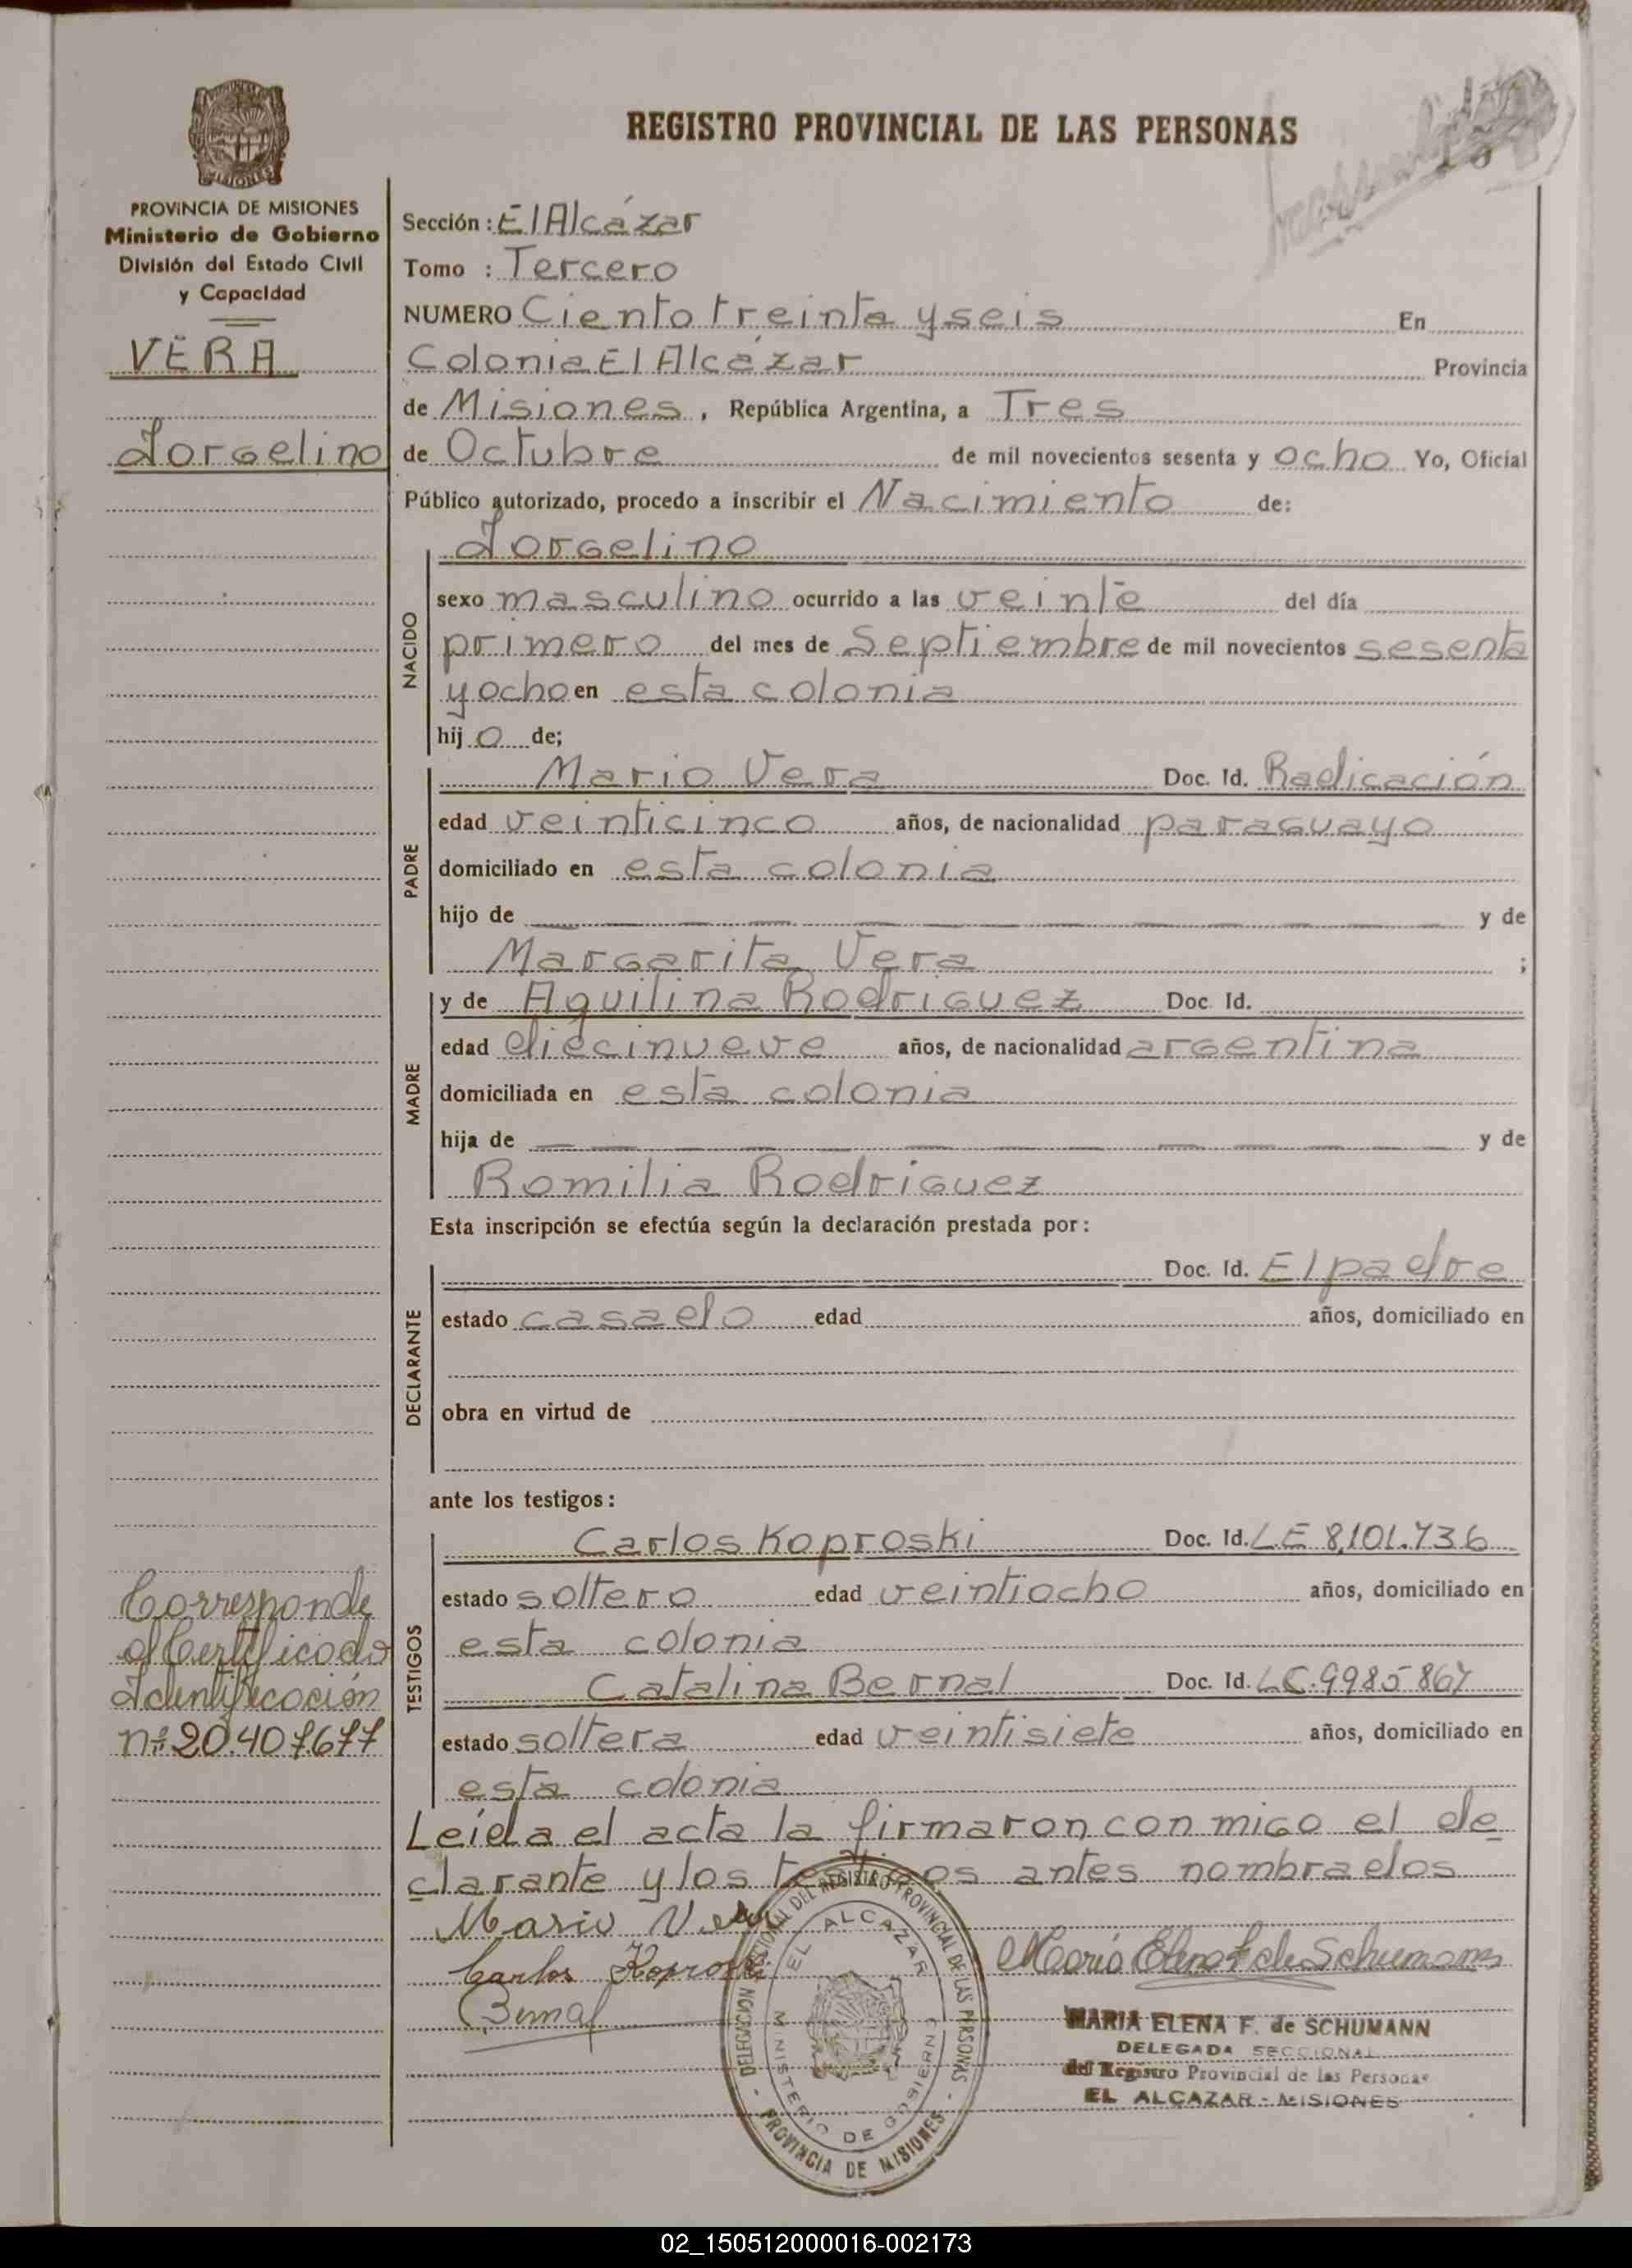 REGISTRO PROVINCIAL DE LAS PERSONAS
MISIONES
PROVINCIA DE MISIONES
Ministerio de Gobierno
División del Estado Civil
y Capacidad
VERA
Jorgelino
Sección: El Alcázar
Tomo : Tercero
NUMERO Ciento treinta y seis En
Colonia El Alcázar Provincia
de Misiones, República Argentina, a Tres
de Octubre de mil novecientos sesenta y ocho Yo, Oficial
Público autorizado, procedo a inscribir el Nacimiento de:
NACIDO
Jorgelino
sexo masculino ocurrido a las veinte del día
primero del mes de Septiembre de mil novecientos sesenta
y ocho en esta colonia
hij o de;
PADRE
Mario Vera Doc. Id. Radicación
edad veinticinco años, de nacionalidad paraguayo
domiciliado en esta colonia
hijo de — — — — — — — — y de
Margarita Vera ;
MADRE
y de Aquilina Rodriguez Doc. Id.
edad diecinueve años, de nacionalidad argentina
domiciliada en esta colonia
hija de — — — — — — — — y de
Romilia Rodriguez
Esta inscripción se efectúa según la declaración prestada por:
DECLARANTE
Doc. Id. El padre
estado casado edad años, domiciliado en
obra en virtud de
ante los testigos:
TESTIGOS
Carlos Koproski Doc. Id. LE 8,101.736
estado soltero edad veintiocho años, domiciliado en
esta colonia
Catalina Bernal Doc. Id. LC.9985867
estado soltera edad veintisiete años, domiciliado en
esta colonia
Corresponde
al Certificado
Identificación
nº 20.407.677
Leída el acta la firmaron conmigo el de
clarante y los testigos antes nombrados
Mario Vera
Carlos Koproski
Bernal
María Elena F de Schumann
MARIA ELENA F. de SCHUMANN
DELEGADA SECCIONAL
del Registro Provincial de las Personas
EL ALCAZAR - MISIONES
DELEGACION SECCIONAL DEL REGISTRO PROVINCIAL DE LAS PERSONAS -
PROVINCIA DE MISIONES
EL ALCAZAR
MINISTERIO DE GOBIERNO
02_150512000016-002173